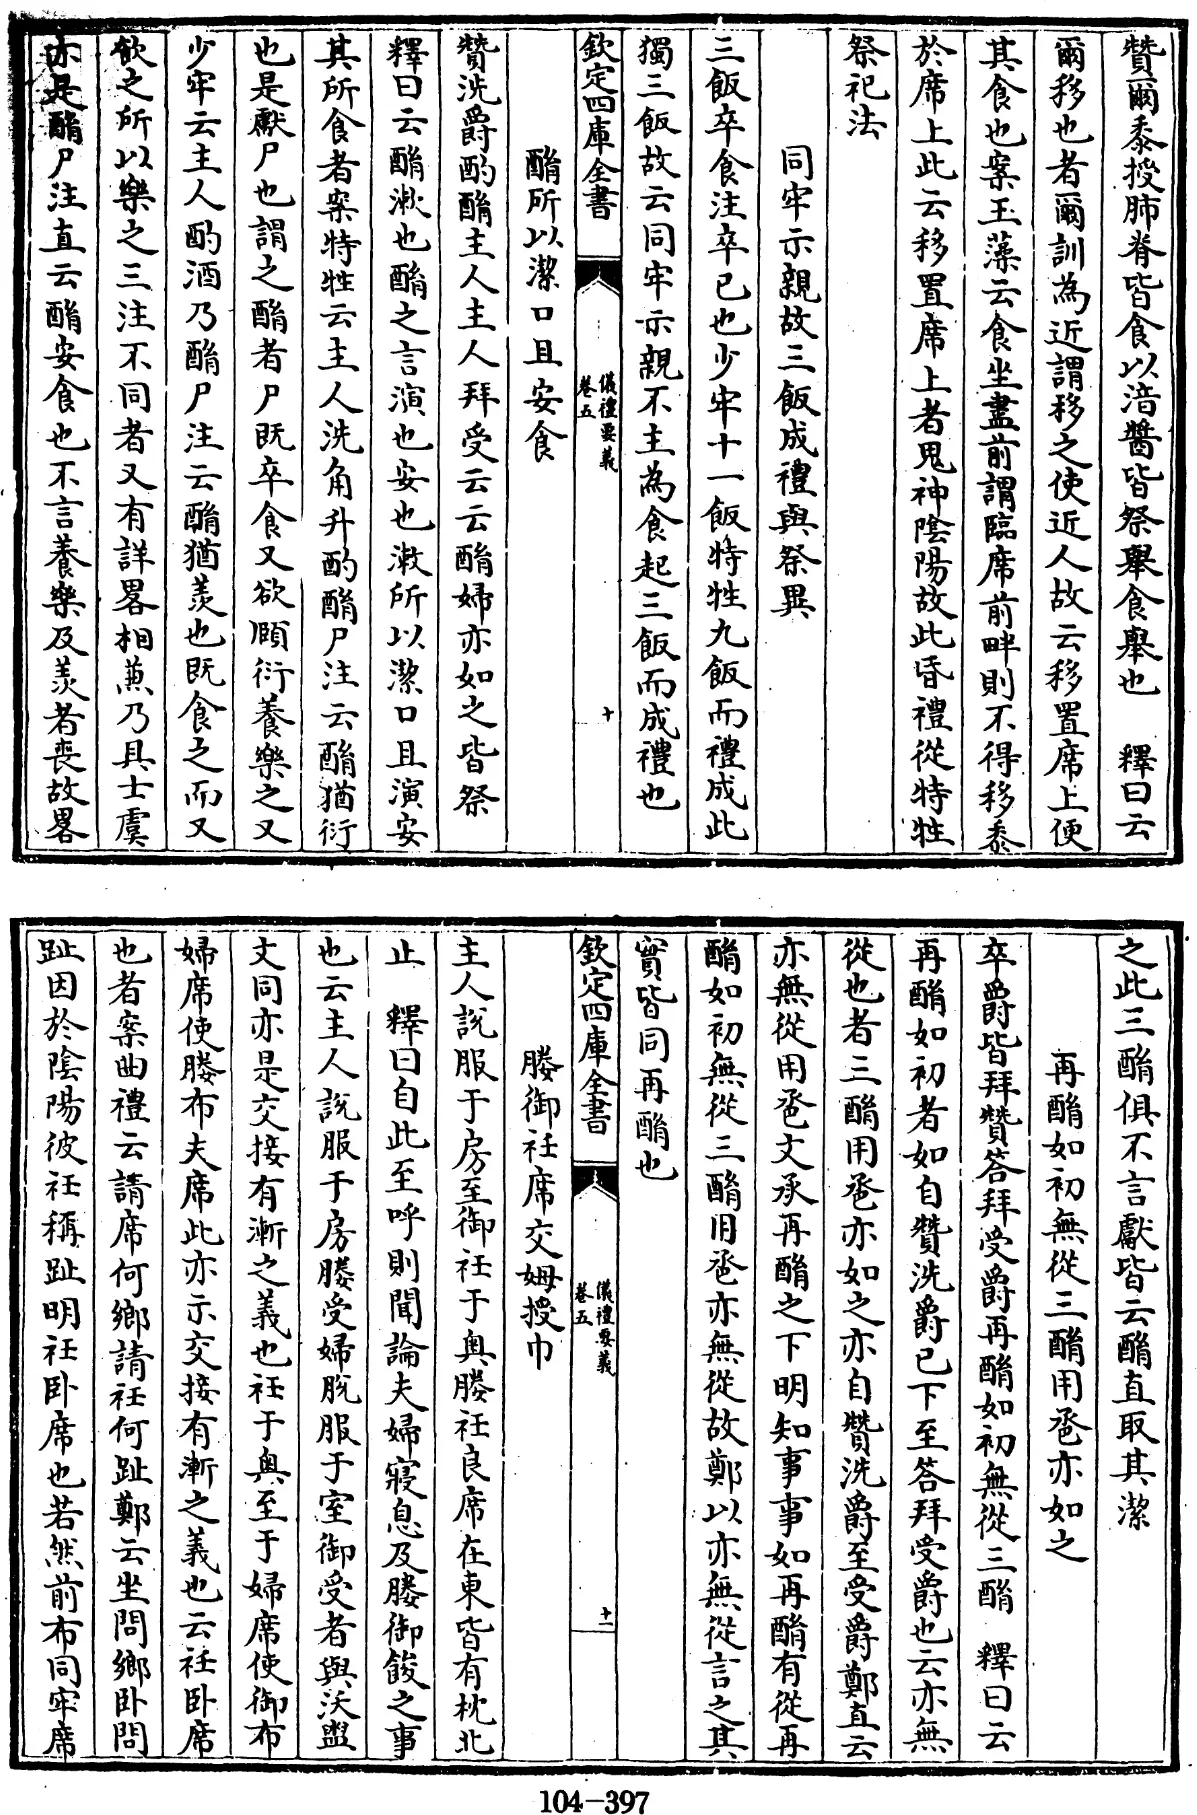 贊爾黍授肺脊皆食以湆醬皆祭舉食舉也　釋曰云
爾移也者爾訓為近謂移之使近人故云移置席上便
其食也案玉藻云食坐盡前謂臨席前畔則不得移黍
於席上此云移置席上者鬼神陰陽故此昏禮從特牲
祭祀法
同牢示親故三飯成禮與祭異
三飯卒食注卒已也少牢十一飯特牲九飯而禮成此
獨三飯故云同牢示親不主為食起三飯而成禮也
欽定四庫全書
儀禮要義
卷五
十
酳所以潔口且安食
贊洗爵酌酳主人主人拜受云云酳婦亦如之皆祭
釋曰云酳漱也酳之言演也安也漱所以潔口且演安
其所食者案特牲云主人洗角升酌酳尸注云酳猶衍
也是獻尸也謂之酳者尸既卒食又欲頤衍養樂之又
少牢云主人酌酒乃酳尸注云酳猶羨也既食之而又
飲之所以樂之三注不同者又有詳畧相兼乃具士虞
亦是酳尸注直云酳安食也不言養樂及羨者喪故畧
之此三酳俱不言獻皆云酳直取其潔
再酳如初無從三酳用卺亦如之
卒爵皆拜贊答拜受爵再酳如初無從三酳　釋曰云
再酳如初者如自贊洗爵已下至答拜受爵也云亦無
從也者三酳用卺亦如之亦自贊洗爵至受爵鄭直云
亦無從用卺文承再酳之下明知事事如再酳有從再
酳如初無從三酳用卺亦無從故鄭以亦無從言之其
實皆同再酳也
欽定四庫全書
儀禮要義
卷五
十一
媵御衽席交姆授巾
主人說服于房至御衽于奥媵衽良席在東皆有枕北
止　釋曰自此至呼則聞論夫婦寢息及媵御餕之事
也云主人說服于房媵受婦脫服于室御受者與沃盥
文同亦是交接有漸之義也衽于奥至于婦席使御布
婦席使媵布夫席此亦示交接有漸之義也云衽卧席
也者案曲禮云請席何鄉請衽何趾鄭云坐問鄉卧問
趾因於陰陽彼衽稱趾明衽卧席也若然前布同牢席
104-397